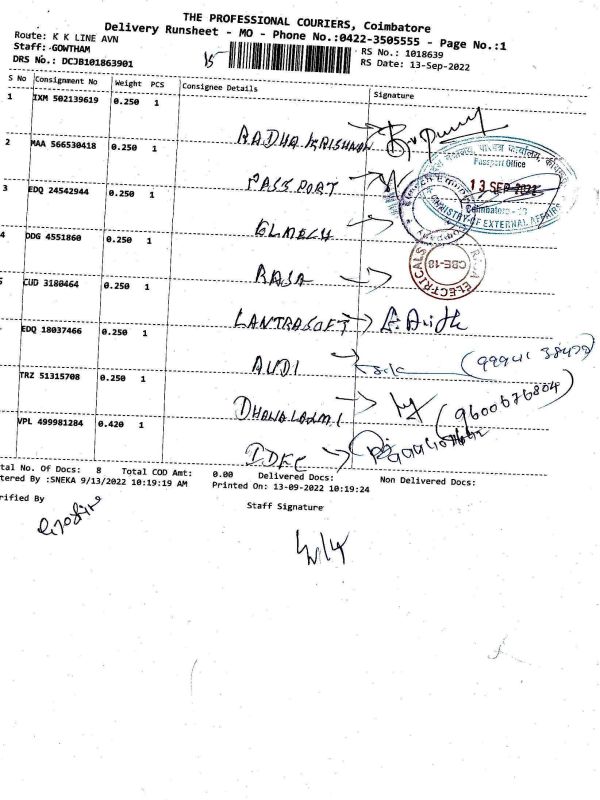 THE PROFESSIONAL COURIERS, Coimbatore
Delivery Runsheet - MO - Phone No.:0422-3505555 - Page No.:1
Route: K K LINE AVN
Staff: GOWTHAM
DRS No.: DCJB101863901
15
RS No.: 1018639
RS Date: 13-Sep-2022
S No Consignment No Weight PCS Consignee Details Signature
1 IXM 502139619 0.250 1 RADHA KRISHNAN
2 MAA 566530418 0.250 1 PASSPORT
Passport Office
13 SEP 2022
Coimbatore - 18
MINISTRY OF EXTERNAL AFFAIRS
3 EDQ 24542944 0.250 1
4 DDG 4551860 0.250 1 RAJA
RAJA ELECTRICALS
CBE-18
CUD 3180464 0.250 1 LANTRASOFT
EDQ 18037466 0.250 1 AUDI
TRZ 51315708 0.250 1 DHANALAXMI
(9600676804)
VPL 499981284 0.420 1 IDFC
tal No. Of Docs: 8 Total COD Amt: 0.00 Delivered Docs: Non Delivered Docs:
tered By :SNEKA 9/13/2022 10:19:19 AM Printed On: 13-09-2022 10:19:24
rified By
Staff Signature